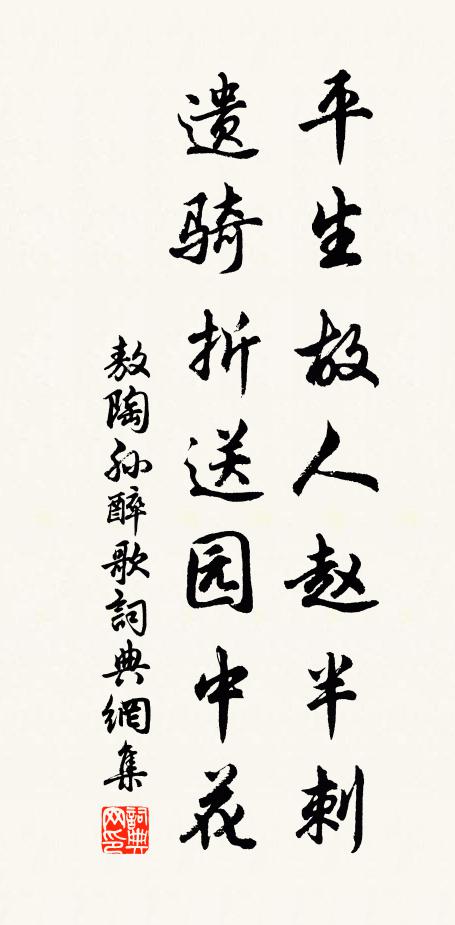 平生故人赵半刺
遗骑折送园中花
敖陶孙醉歌詞典網集
詞典网印